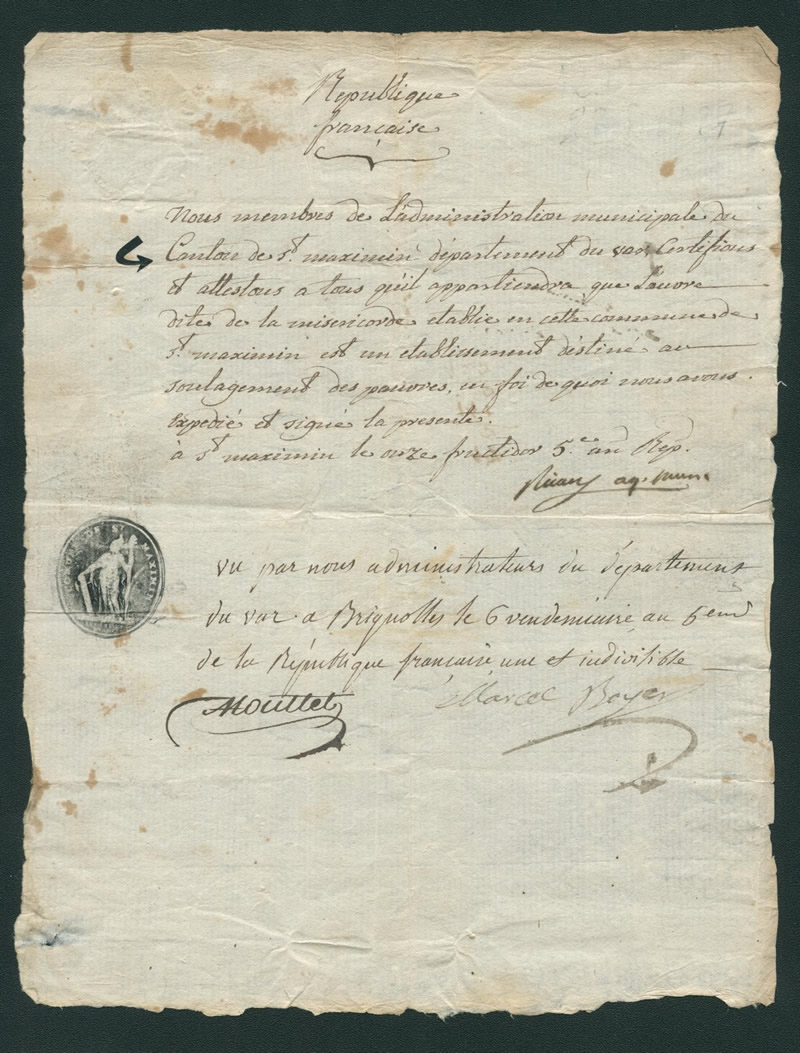 Republique
francaise
Nous membres de L'administration municipale du
Canton de St. maximin département du var Certifions
et attestons a tous qu'il appartiendra que L'œuvre
dite de la misericorde etablie en cette commune de
St. maximin est un etablissement destiné au
soulagement des pauvres, en foi de quoi nous avons
Expedié et signé la presente.
à St maximin le onze fructidor 5.e an Rep.
ag. mun.
MAXIMIN
vu par nous administrateurs du département
du var a Brignolles le 6 vendemiaire an 6eme
de la République francaise une et indivisible
Mouttet
Marcel Boyer